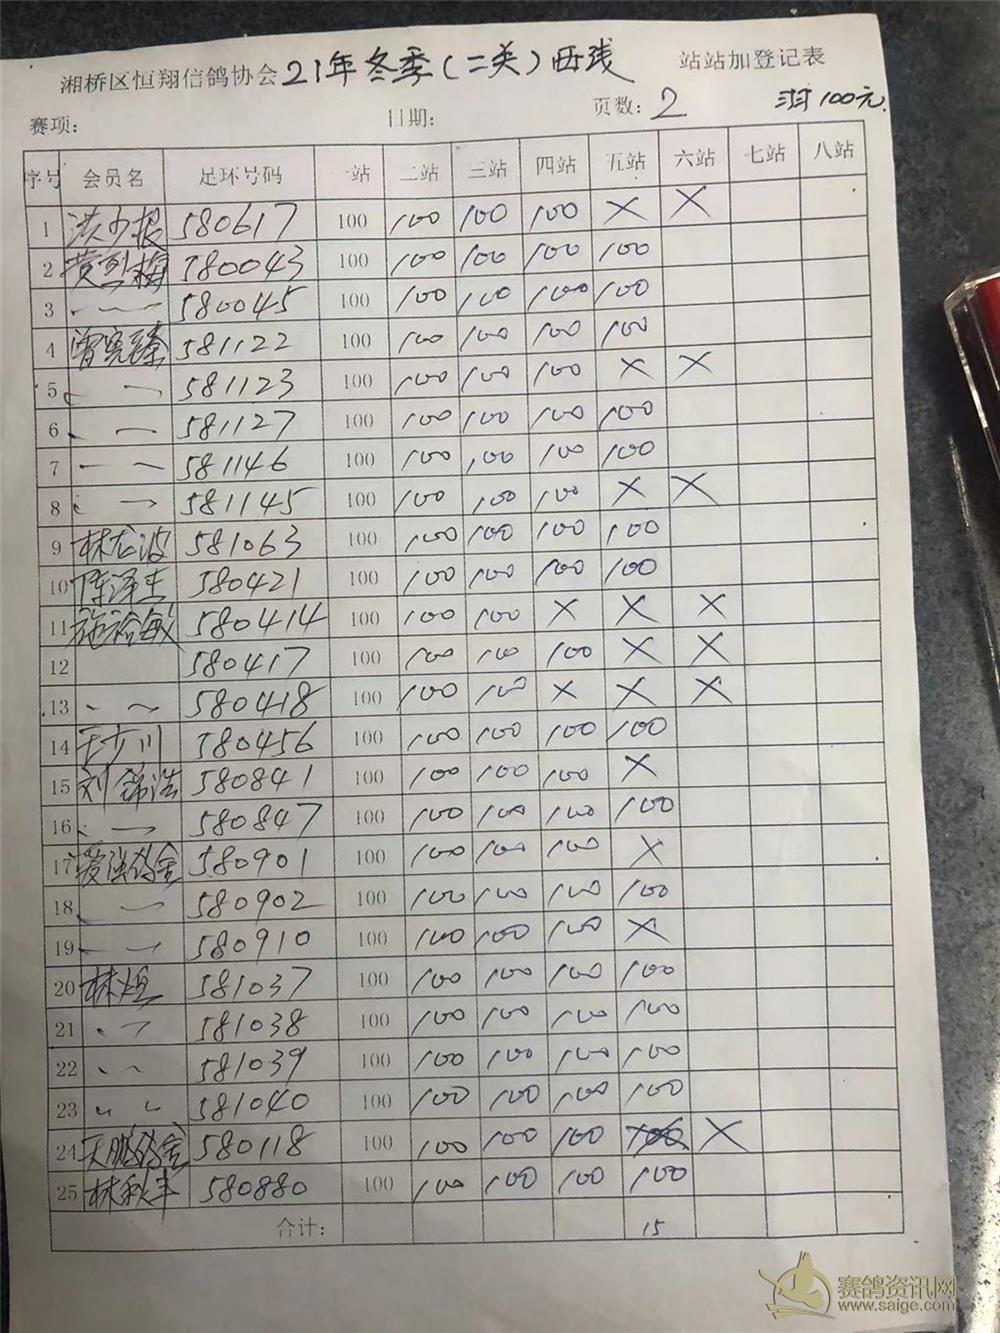 湘桥区恒翔信鸽协会 21年冬季(二关)西线 站站加登记表
赛项: 日期: 页数: 2 100元
序号 会员名 足环号码 一站 二站 三站 四站 五站 六站 七站 八站
1 洪少根 580617 100 100 100 100 X X
2 黄烈梅 580043 100 100 100 100 100
3 580045 100 100 100 100 100
4 581122 100 100 100 100 100
5 581123 100 100 100 100 X X
6 581127 100 100 100 100 100
7 581146 100 100 100 100 100
8 581145 100 100 100 100 X X
9 林龙波 581063 100 100 100 100 100
10 陈泽生 580421 100 100 100 100 100
11 施裕敏 580414 100 100 100 X X X
12 580417 100 100 100 100 X X
13 580418 100 100 100 X X X
14 王少川 580456 100 100 100 100 100
15 刘锦浩 580841 100 100 100 100 X
16 580847 100 100 100 100 100
17 580901 100 100 100 100 X
18 580902 100 100 100 100 100
19 580910 100 100 100 100 X
20 林烜 581037 100 100 100 100 100
21 581038 100 100 100 100 100
22 581039 100 100 100 100 100
23 581040 100 100 100 100 100
24 天鹏鸽舍 580118 100 100 100 100 100 X
25 林秋丰 580880 100 100 100 100 100
合计: 15
赛鸽资讯网
www.saige.com